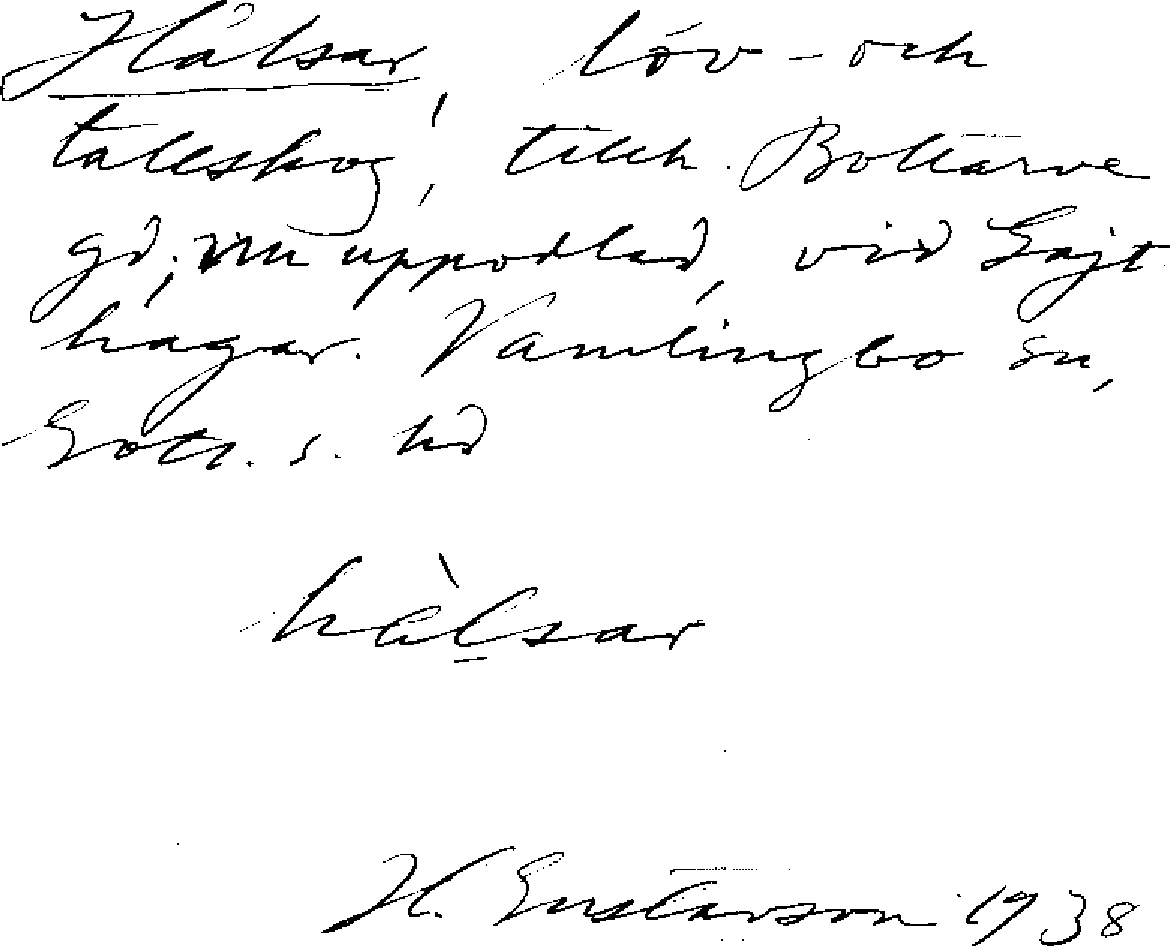 Hålsar, löv- och
tallskog, tillh. Bottarve
gd, nu uppodlad, vid Gajt
hagar. Vamlingbo sn,
Gotl. s. hd
hàlsar
H. Gustavson 1938